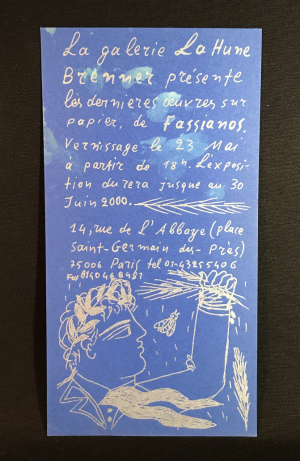 La galerie La Hune
Brenner présente
les dernieres œuvres sur
papier, de Fassianos.
Vernissage le 23 Mai
a partir de 18h. L'exposi-
tion durera jusque au 30
Juin 2000.
14, rue de l'Abbaye (place
Saint-Germain des-Près)
75006 Paris tel 01-43255406
Fax 0140468481